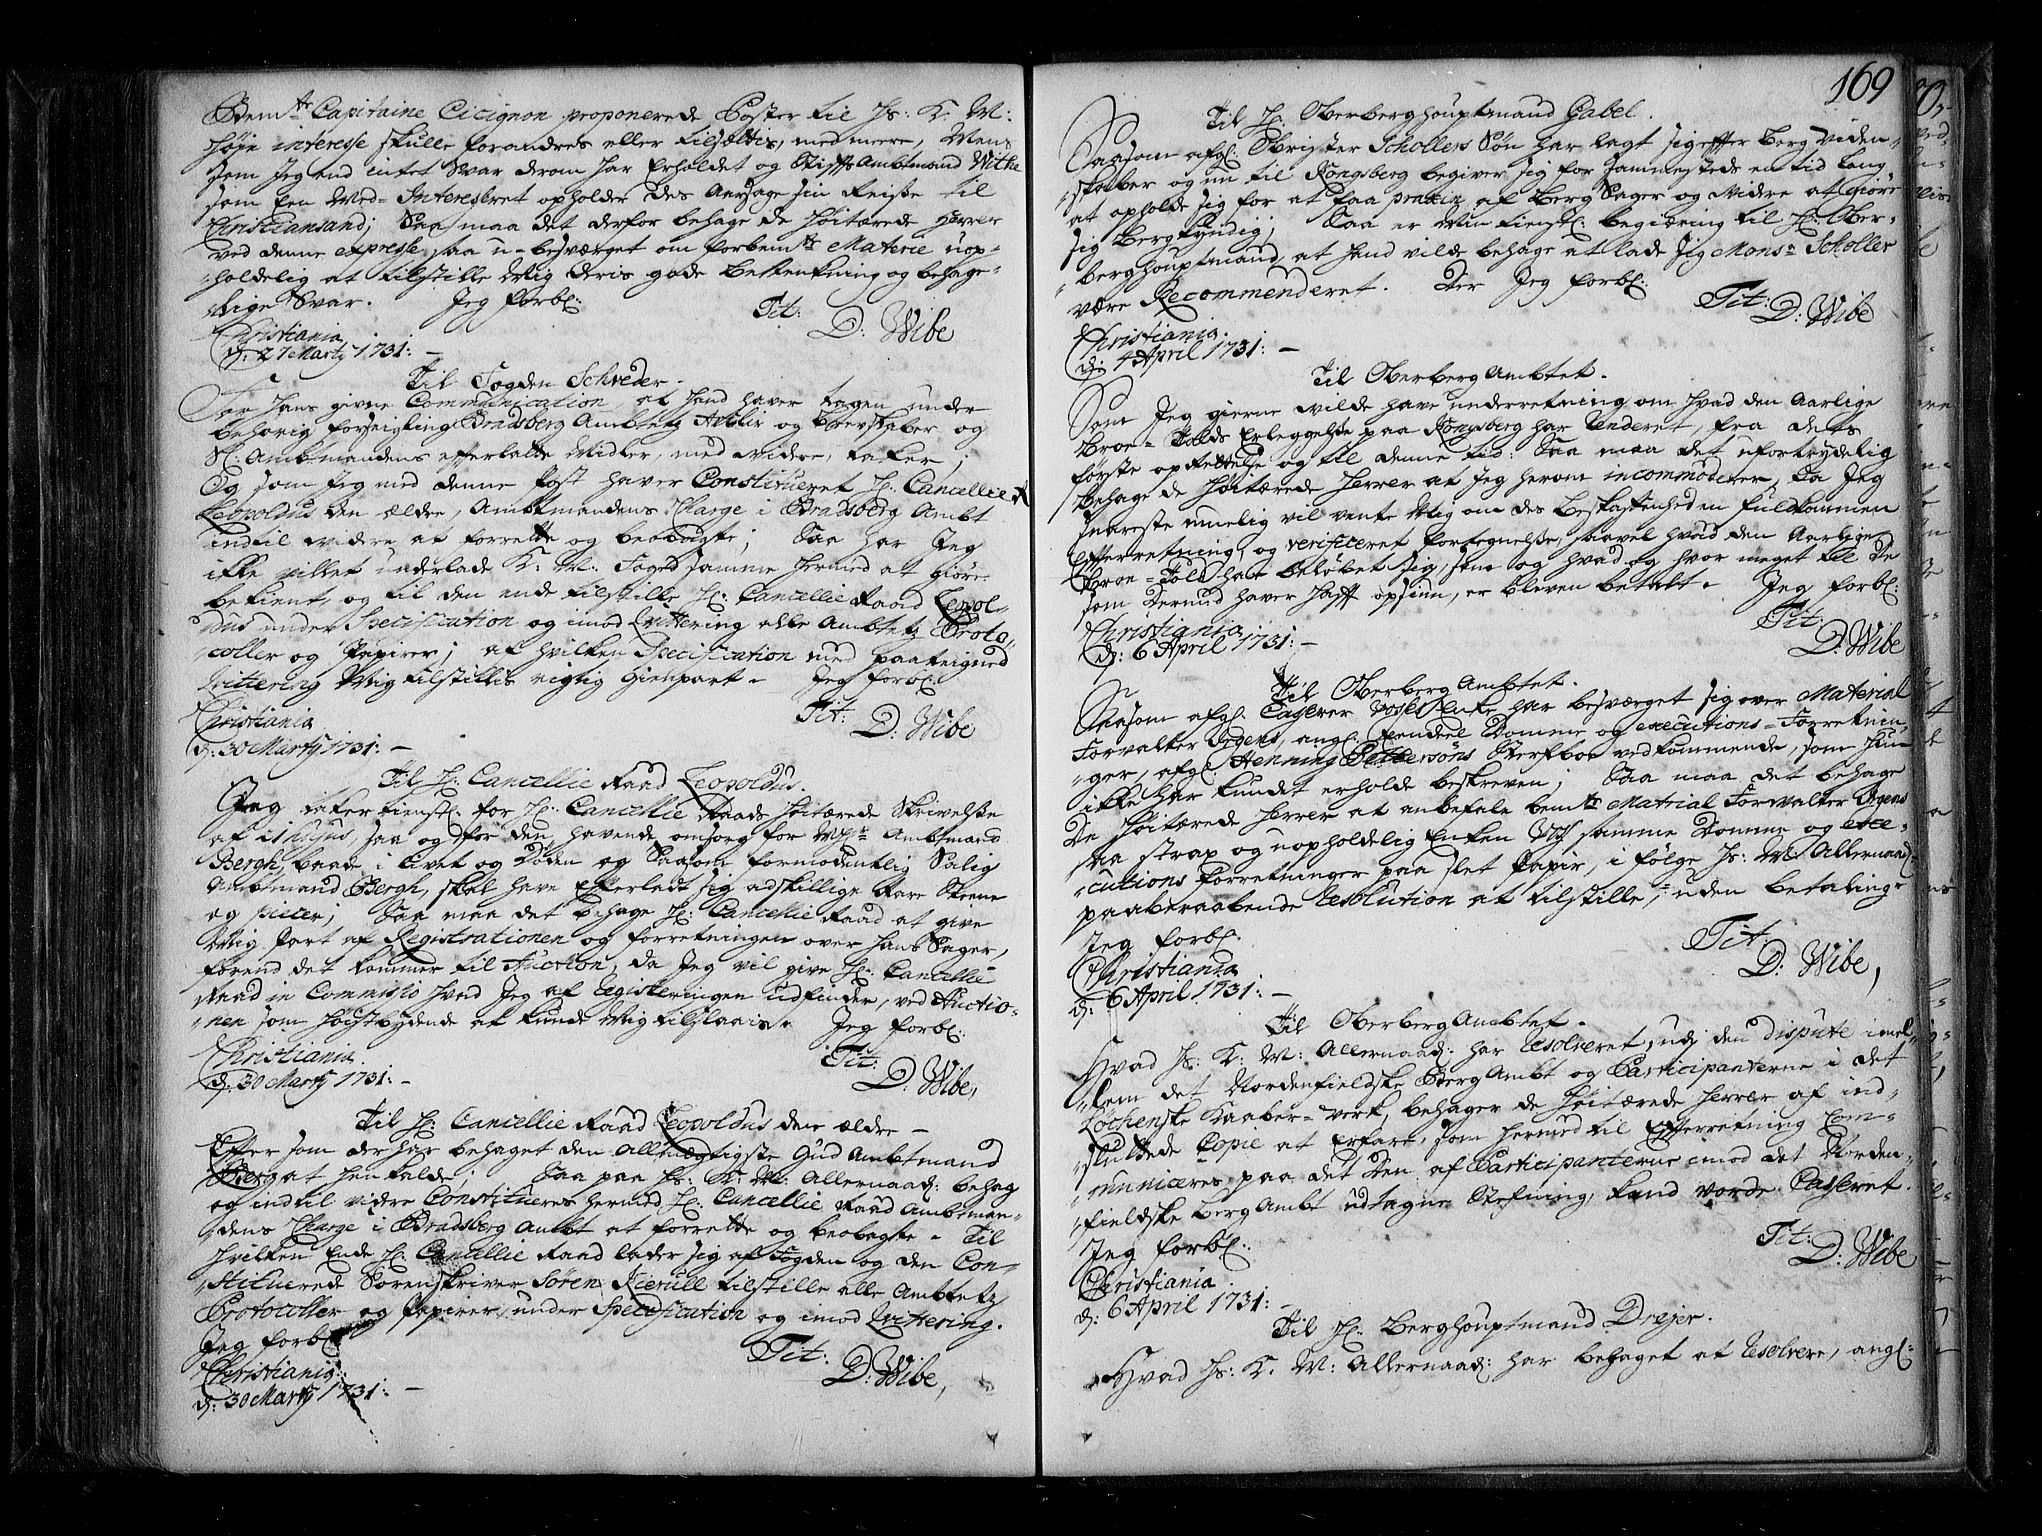 Bem.te Capitaine Cicignon proponerede Poster til Hs: K: M:
høje interesse skulle forandres eller tilsættis, med mere, Mens
som Jeg end intet Svar derom har erholdet og Stiftsambtmand Withe
som Een Med-Interesseret opholder des Aarsage sin Reise til
Christiansand; Saa maa det derfor behage de Høitærede Herrer
ved denne expresse, saa u-besværget om forbem.te Materie uop-
holdelig at tilstille Mig deris gode betenkning og behage-
lige Svar. Jeg forbl:
Tit: D: Wibe
Christiania
d: 27 Marty 1731: —
Til Fogden Schreder.
For hans givne Communication, at hand haver tagen under
behørig forseigling Bradsberg Ambtets Archiv og brevskaber og
Sl: Ambtmandens efterlatte Midler, med widere, taker;
Og som Jeg med denne Post haver Constitueret Hr: Cancellie R
Leopoldus den ældre, Ambtmandens Charge i Bradsberg Ambt
indtil widere at forrette og beobagte; Saa har Jeg
ikke villet underlade K: M: Foged samme hermed at giøre
bekient, og til den ende tilstille Hr: Cancellie Raad Leopol-
dus under Specification og imod Qvittering alle Ambtets Proto-
coller og Papirer; af hvilken Specification med paateigned
Qvittering Mig tilstillis rigtig Gienpart. Jeg forbl:
Tit: D: Wibe
Christiania
d: 30 Marty 1731: —
Til Hr: Cancellie Raad Leopoldus.
Jeg taker tienstl: for Hr: Cancellie Raads Høitærede Skrivelse
af 21 hujus, saa og for den havende omsorg for Ambtmand
Bergh, baade i Livet og Døden og Saasom formodentlig Salig
Ambtmand Bergh, skal have Efterladt sig adskillige Rare Steene
og pieter; Saa maa det behage Hr: Cancellie Raad at give
Mig Part af Registrationen og forretningen over hans Sager,
førend det kommer til Auction, da Jeg vil give Hr: Cancellie
Raad in Commissio hvad Jeg af Registeringen udfinder, ved Auctio-
nen som høistbydende at kunde Mig tilslaais. Jeg forbl:
Tit: D: Wibe,
Christiania
d: 30 Marty 1731: —
Til Hr: Cancellie Raad Leopoldus den ældre —
Efter som der har behaget den Allmægtigste Gud Ambtmand
Berg at henkalde; Saa paa Hs: K: M: Allernaad: behag
og indtil vidre Constitueres hermed Hr: Cancellie Raad Ambtman-
dens Charge i Bradsberg Ambt at forrette og beobagte. Til
hvilken Ende Hr: Cancellie Raad lader sig af Fogden og den Con-
stituerede Sorenskriver Søren Kierulf tilstille alle Ambtets
Protocoller og Papirer, under Specification og imod Qvittering.
Jeg forbl:
Tit: D: Wibe,
Christiania
d: 30 Marty 1731: —
169
Til Hr: Oberberghouptmand Gabel.
Saasom afgl: Obrister Schøllers Søn har lagt sig effter Berg Viden-
skaber og nu til Kongsberg begiver sig for sammestede en tid lang
at opholde sig for at faa praxin af Berg Sager og vidre at giøre
sig bergkyndig; Saa er Min tienstl: begiæring til Hr: Ober-
berghouptmand, at hand vilde behage at lade sig Mons.r Schøller
være Recommenderet. Der Jeg forbl:
Tit: D: Wibe
Christiania.
d: 4 April 1731: —
Til OberbergAmbtet.
Som Jeg gierne vilde have underretning om hvad den Aarlige
Broe-Tolds Erleggelse paa Kongsberg har Renderet, fra dens
første oprettelse og til denne tid: Saa maa det ufortrydelig
behage de Høitærede Herrer at Jeg herom incommoderer, Da Jeg
snareste muelig vil vente Mig om des beskaffenhed en fuldkommen
Efterretning, og verificeret fortegnelse, saavel hvad den Aarlige
Broe-Told har beløbet sig, som og hvad og hvor meget til de
som dermed haver hafft opsiun, er bleven betalt. Jeg forbl:
Tit D: Wibe
Christiania
d: 6 April 1731: —
Til OberbergAmbtet.
Saasom afgl: Casserer Voss Enke har besværget sig over Material
Forvalter Irgens, angl: Eendeel Domme og executions-Forretnin-
ger, afgl: Henning Pettersøns Sterfboe vedkommende, som hun
ikke har kundet erholde beskreven; Saa maa det behage
De Høitærede Herrer at anbefale bem.te Matrial Forvalter Irgens
saa strax og uopholdelig Enken Voss samme Domme og exe-
cutions forretninger paa slet Papir, i følge Hs: M: Allernaad:
paaberaabende Resolution at tilstille, uden betaling.
Jeg forbl:
Tit D: Wibe,
Christiania
d: 6 April 1731: —
Til OberbergAmbtet.
Hvad Hs: K: M: Allernaad: har Resolveret, udj den dispute imel-
lem det Nordenfieldske BergAmbt og Participanterne i det
Løchenske Kaaber-Verk, behager de Høitærede Herrer af ind-
sluttede Copie at erfare, som hermed til Efterretning Com-
municeres paa det Den af Participanterne imod det Norden-
fieldske Berg Ambt udtagne Stefning, kand vorde Casseret.
Jeg forbl:
Tit: D: Wibe
Christiania.
d: 6 April 1731: —
Til Hr: Berghouptmand Drejer.
Hvad Hs: K: M: Allernaad: har behaget at Resolvere, angl: